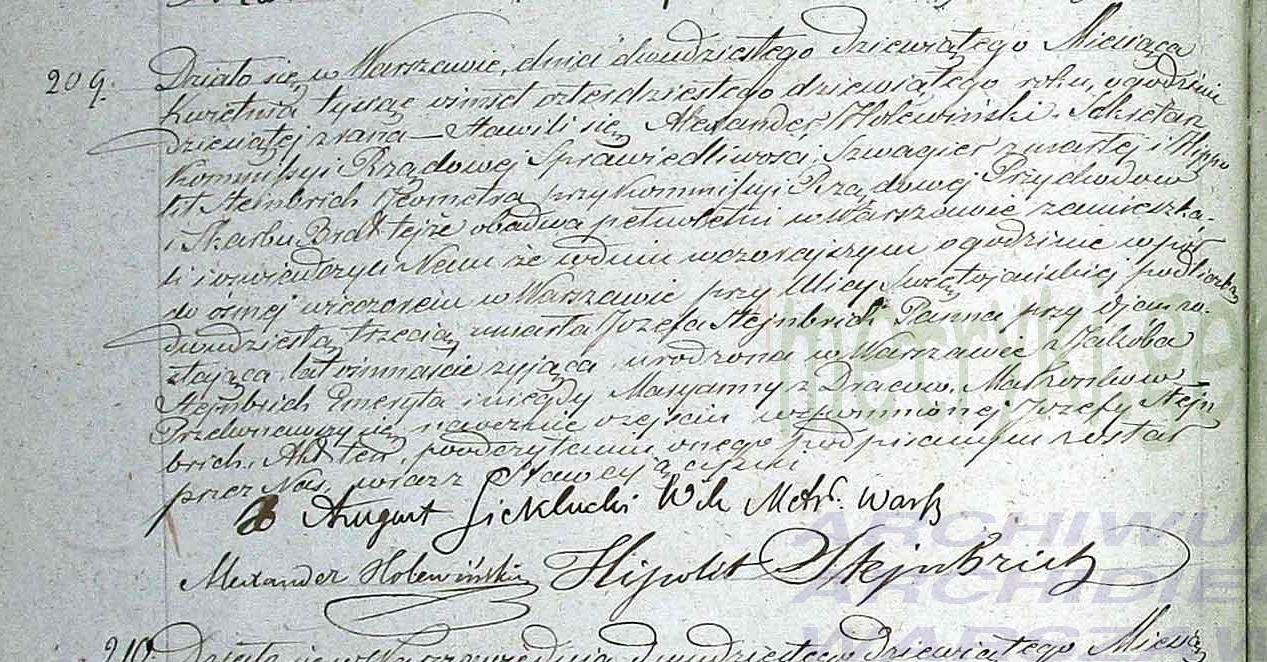 209. Działo się w Warszawie, dnia dwudziestego dziewiątego Miesiąca
Kwietnia tysiąc ośmset czterdziestego dziewiątego roku, o godzinie
dziesiątej z rana — Stawili się Alexander Holewiński Sekretarz
Kommissyi Rządowej Sprawiedliwości, Szwagier zmarłej i Hippo
lit Stejnbrich Jeometra przy Kommissyi Rządowej Przychodów
i Skarbu, Brat tejże obadwa pełnoletni w Warszawie zamieszka-
li i oświadczyli Nam że w dniu wczorajszym o godzinie w pół
do ósmej wieczorem w Warszawie przy Ulicy Swiętojańskiej pod liczbą
dwudziestą trzecią, zmarła Jozefa Stejnbrich Panna przy Ojcu zo-
stająca, lat ośmnaście żyjąca, urodzona w Warszawie z Jakóba
Stejnbrich Emeryta i niegdy Maryanny z Małżonków
Przekonawszy się naocznie o zejściu wspomnionej Jozefy Stejn
brich, Akt ten, po odczytaniu onego podpisanym został
przez Nas, wraz z Stawającymi
X August Sieklucki Wik Metr. Warsz
Alexander Holewiński Hipolit Stejnbrich
210. Działo się w Warszawie, dnia dwudziestego dziewiątego Miesią
metryki.ge
ARCHIWU
ARCHIDIE
WARSZAW